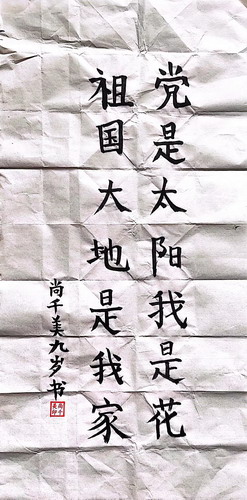 党是太阳我是花
祖国大地是我家
尚千美九岁书